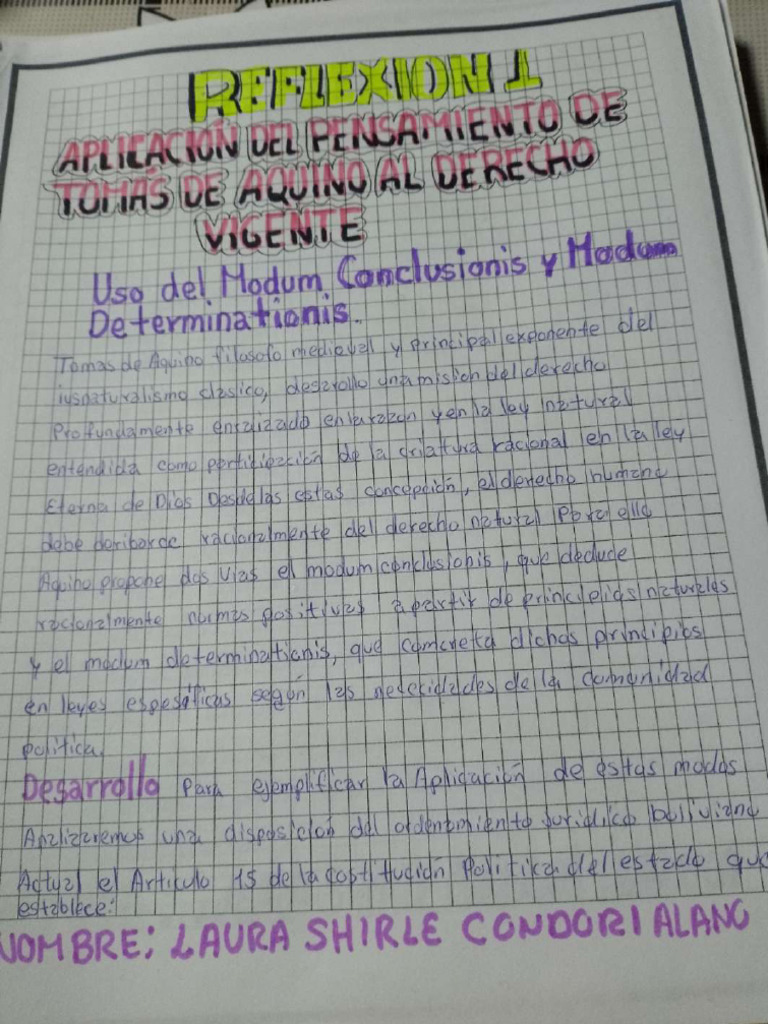 REFLEXION 1
APLICACIÓN DEL PENSAMIENTO DE
TOMÁS DE AQUINO AL DERECHO
VIGENTE
Uso del Modum Conclusionis y Modum
Determinationis.
Tomas de Aquino filosofo medieval y principal exponente del
iusnaturalismo clasico, desarollo una mision del derecho
Profundamente enraizado en la razon y en la ley natural
entendida como participación de la criatura racional en la ley
Eterna de Dios Desde las estas concepción, el derecho humano
debe racionalmente del derecho natural Para ello
Aquino propone dos vias el modum conclusionis, que dedude
racionalmente normas positivas a partir de principios naturales
y el modum determinationis, que comcreta dichos principios
en leyes espesificas según las necesidades de la comunidad
politica.
Desarrollo Para ejemplificar la Aplicación de estas modas
Analizaremos una disposición del ordenomiento Juridico boliviano
Actual el Articulo 15 de la costitución Politika del estado que
establece:
NOMBRE: LAURA SHIRLE CONDORI ALANO